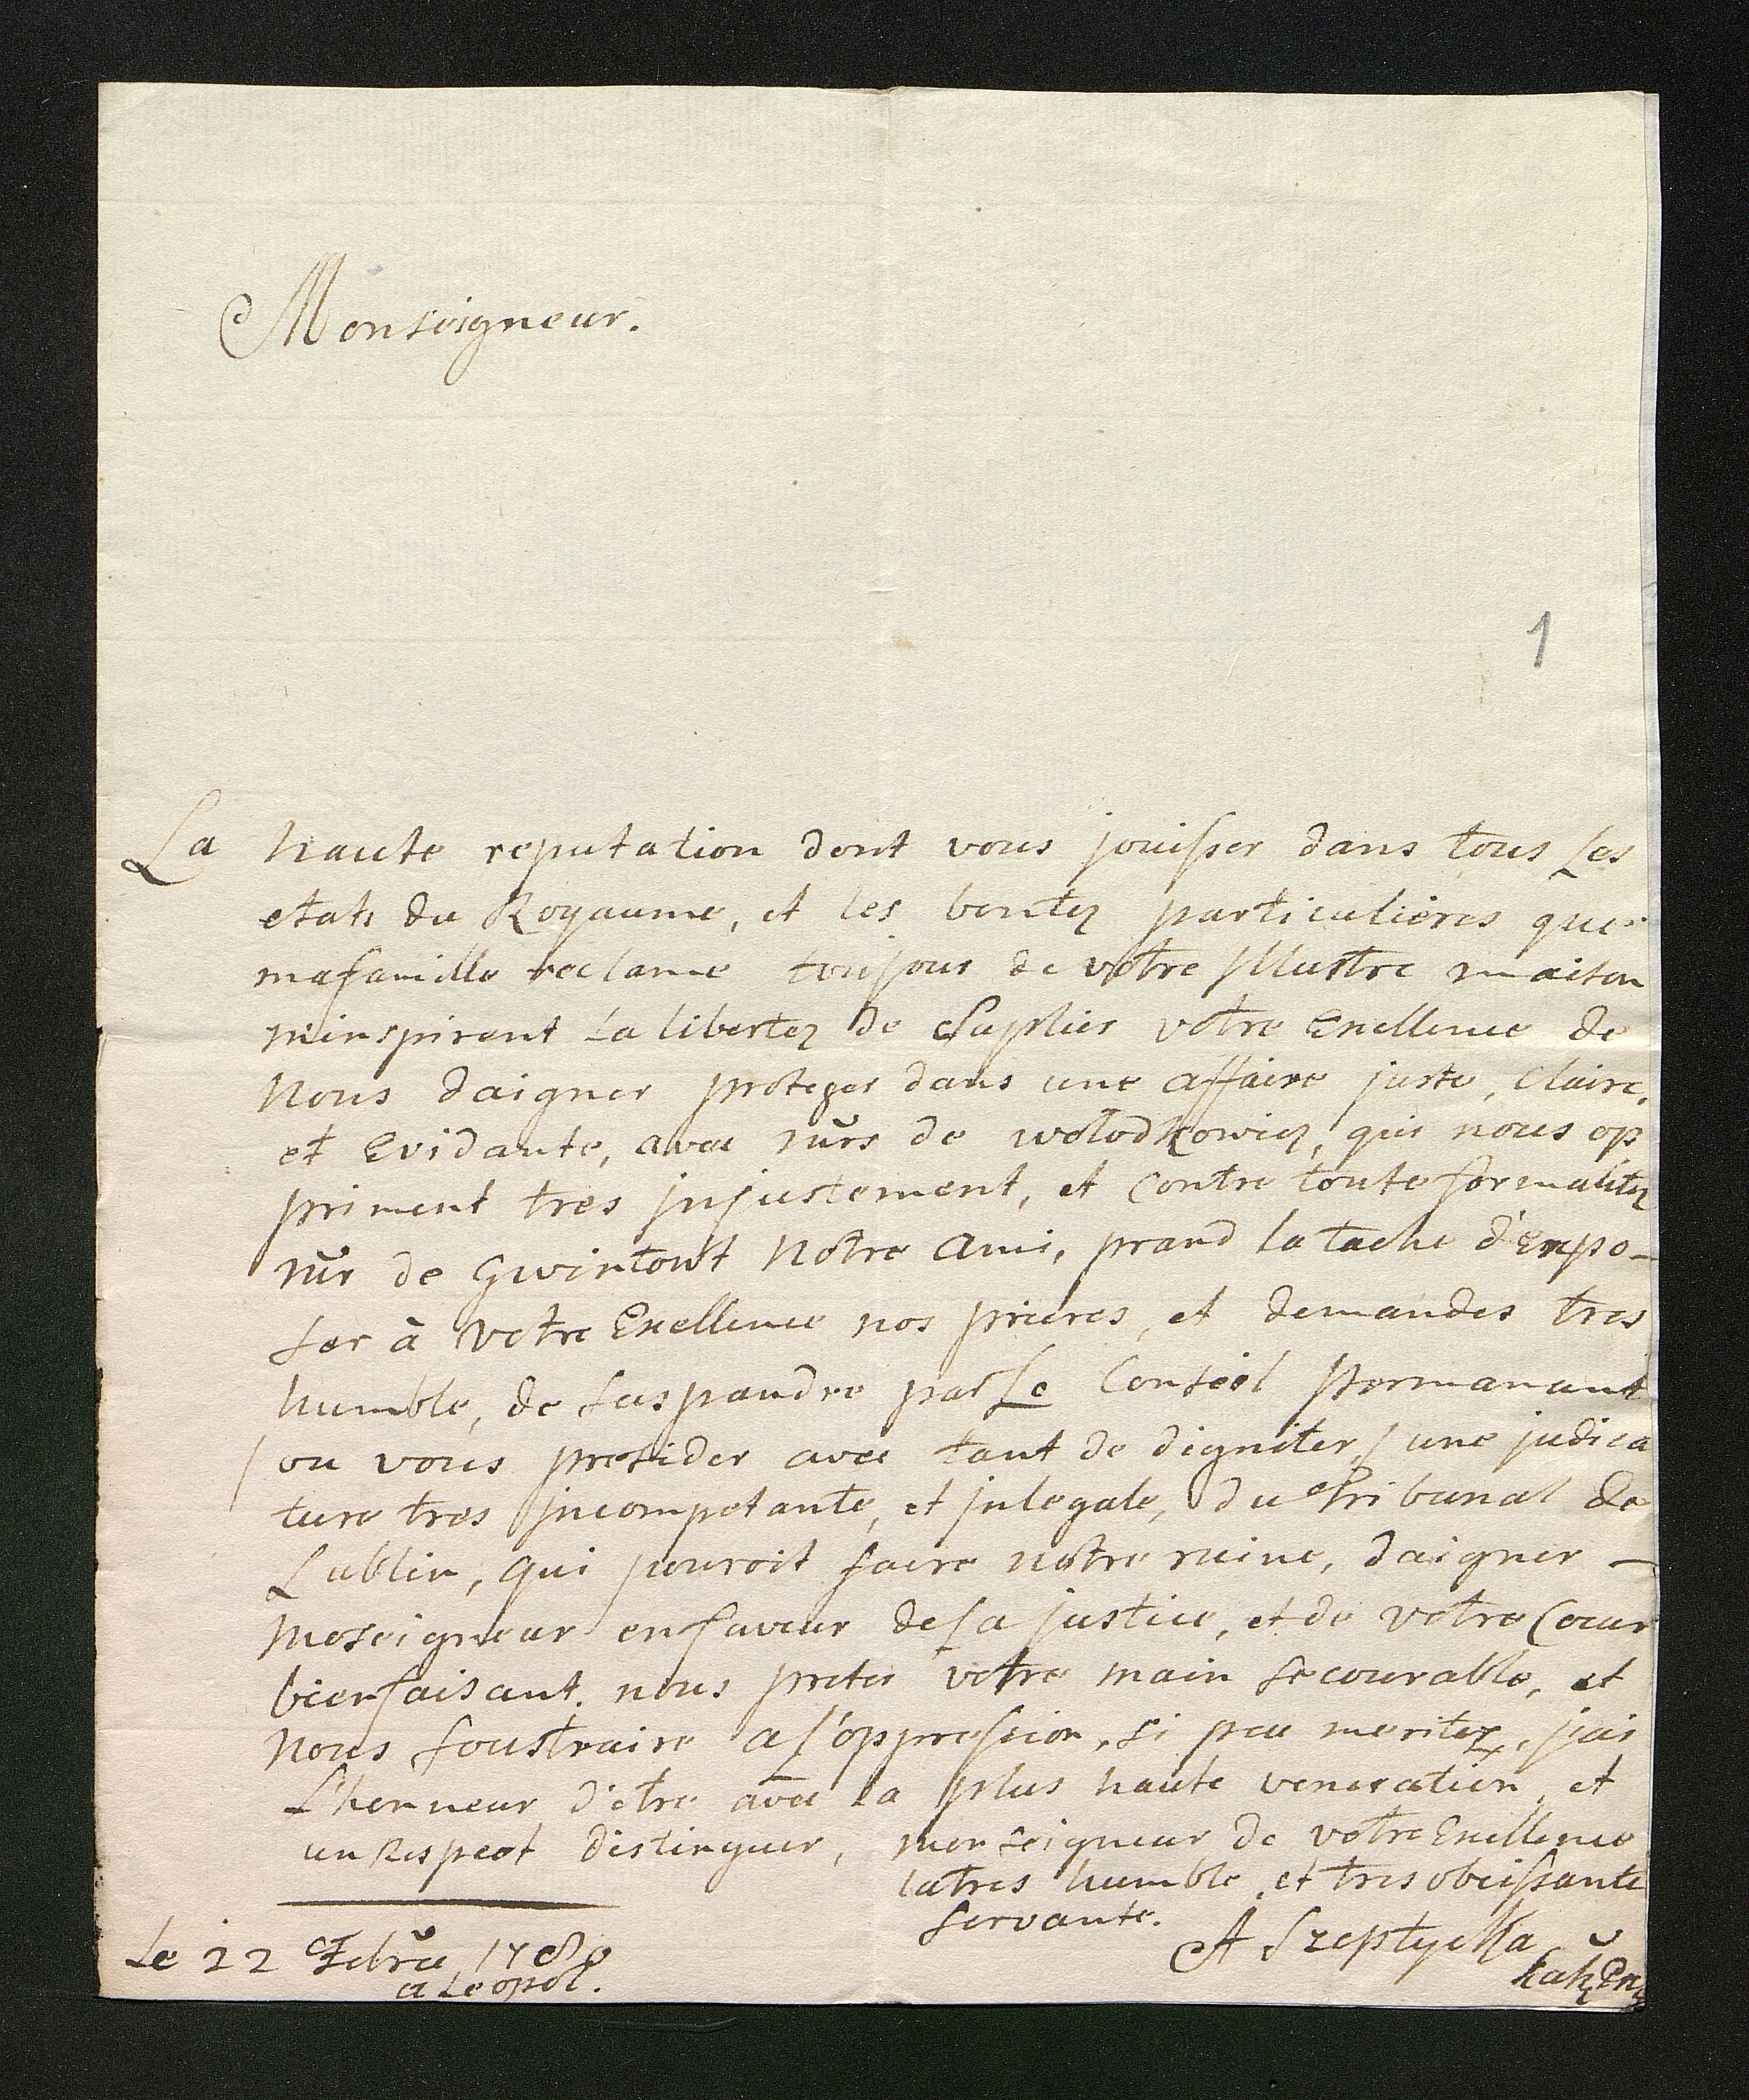 Monseigneur.
1
La haute reputation dont vous jouisser dans tous Les
etats du Royaume, et les bontez particulières que
mafamille reclame toujour de votre jllustre maison
minspirent La libertez de Suplier votre Exellence de
Nous daigner proteger dans une affaire juste, Claire,
et Evidante, avec mr̃s de wolodkowicz, qui nous op
priment tres jnjustement, et Contre toute formalitez
mr̃ de Gwintowt Notre Ami, prand la tache d'Expo-
ser à Votre Exellence nos prieres, et demandes tres
humble, de suspandre par Le Conseil Permanant
/ ou vous presider avec tant de digniter / une judica
ture tres jncompetante, et jnlegale, du Tribunal de
Lublin, qui pouroit faire notre ruine, daigner –
Moseigneur en faveur de La justice, et de votre Cœur
bienfaisant. nous preter votre main secourable, et
Nous soustraire a L'oppression, si peu meritez, jai
L'honneur d'etre avec la plus haute veneration, et
un Respect distinguer, monseigneur de votre Exellence
latres humble, et tres obeissante
servante.
A Szeptycka
Le 22 Febr̃e
a Leopol.